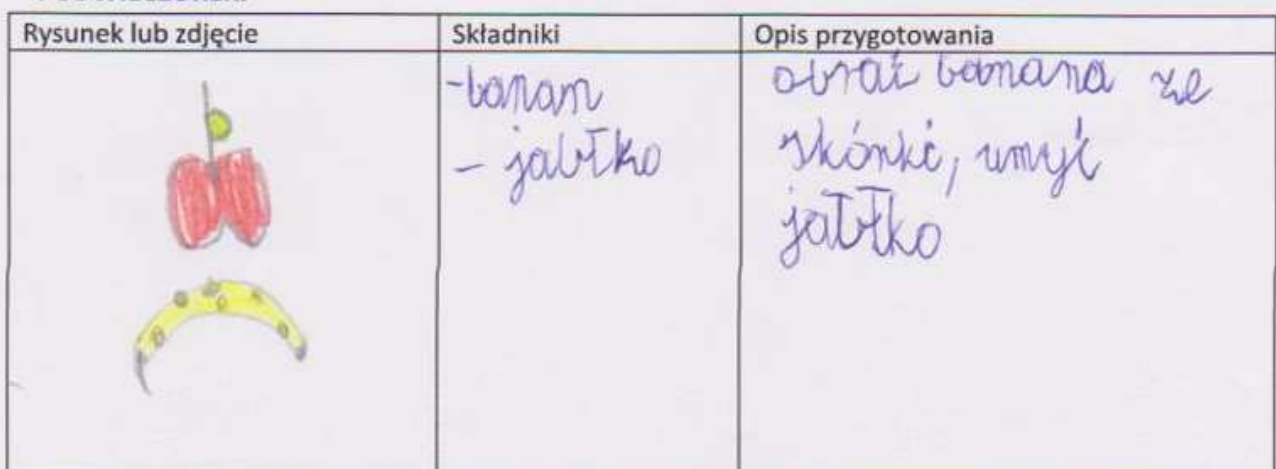 Rysunek lub zdjęcie
Składniki
Opis przygotowania
-banan
- jabłko
obrać banana ze
skórki, umyć
jabłko